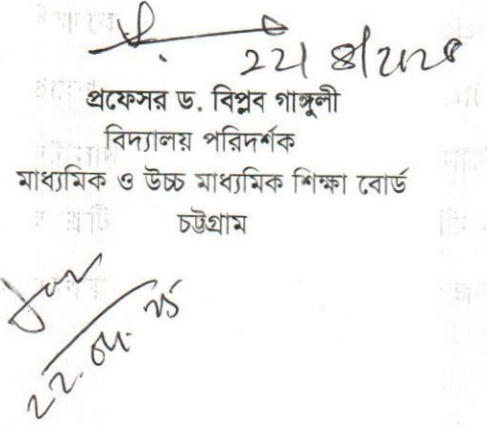 ২২/৪/২০২৫
প্রফেসর ড. বিপ্লব গাঙ্গুলী
বিদ্যালয় পরিদর্শক
মাধ্যমিক ও উচ্চ মাধ্যমিক শিক্ষা বোর্ড
চট্টগ্রাম
22.04.25